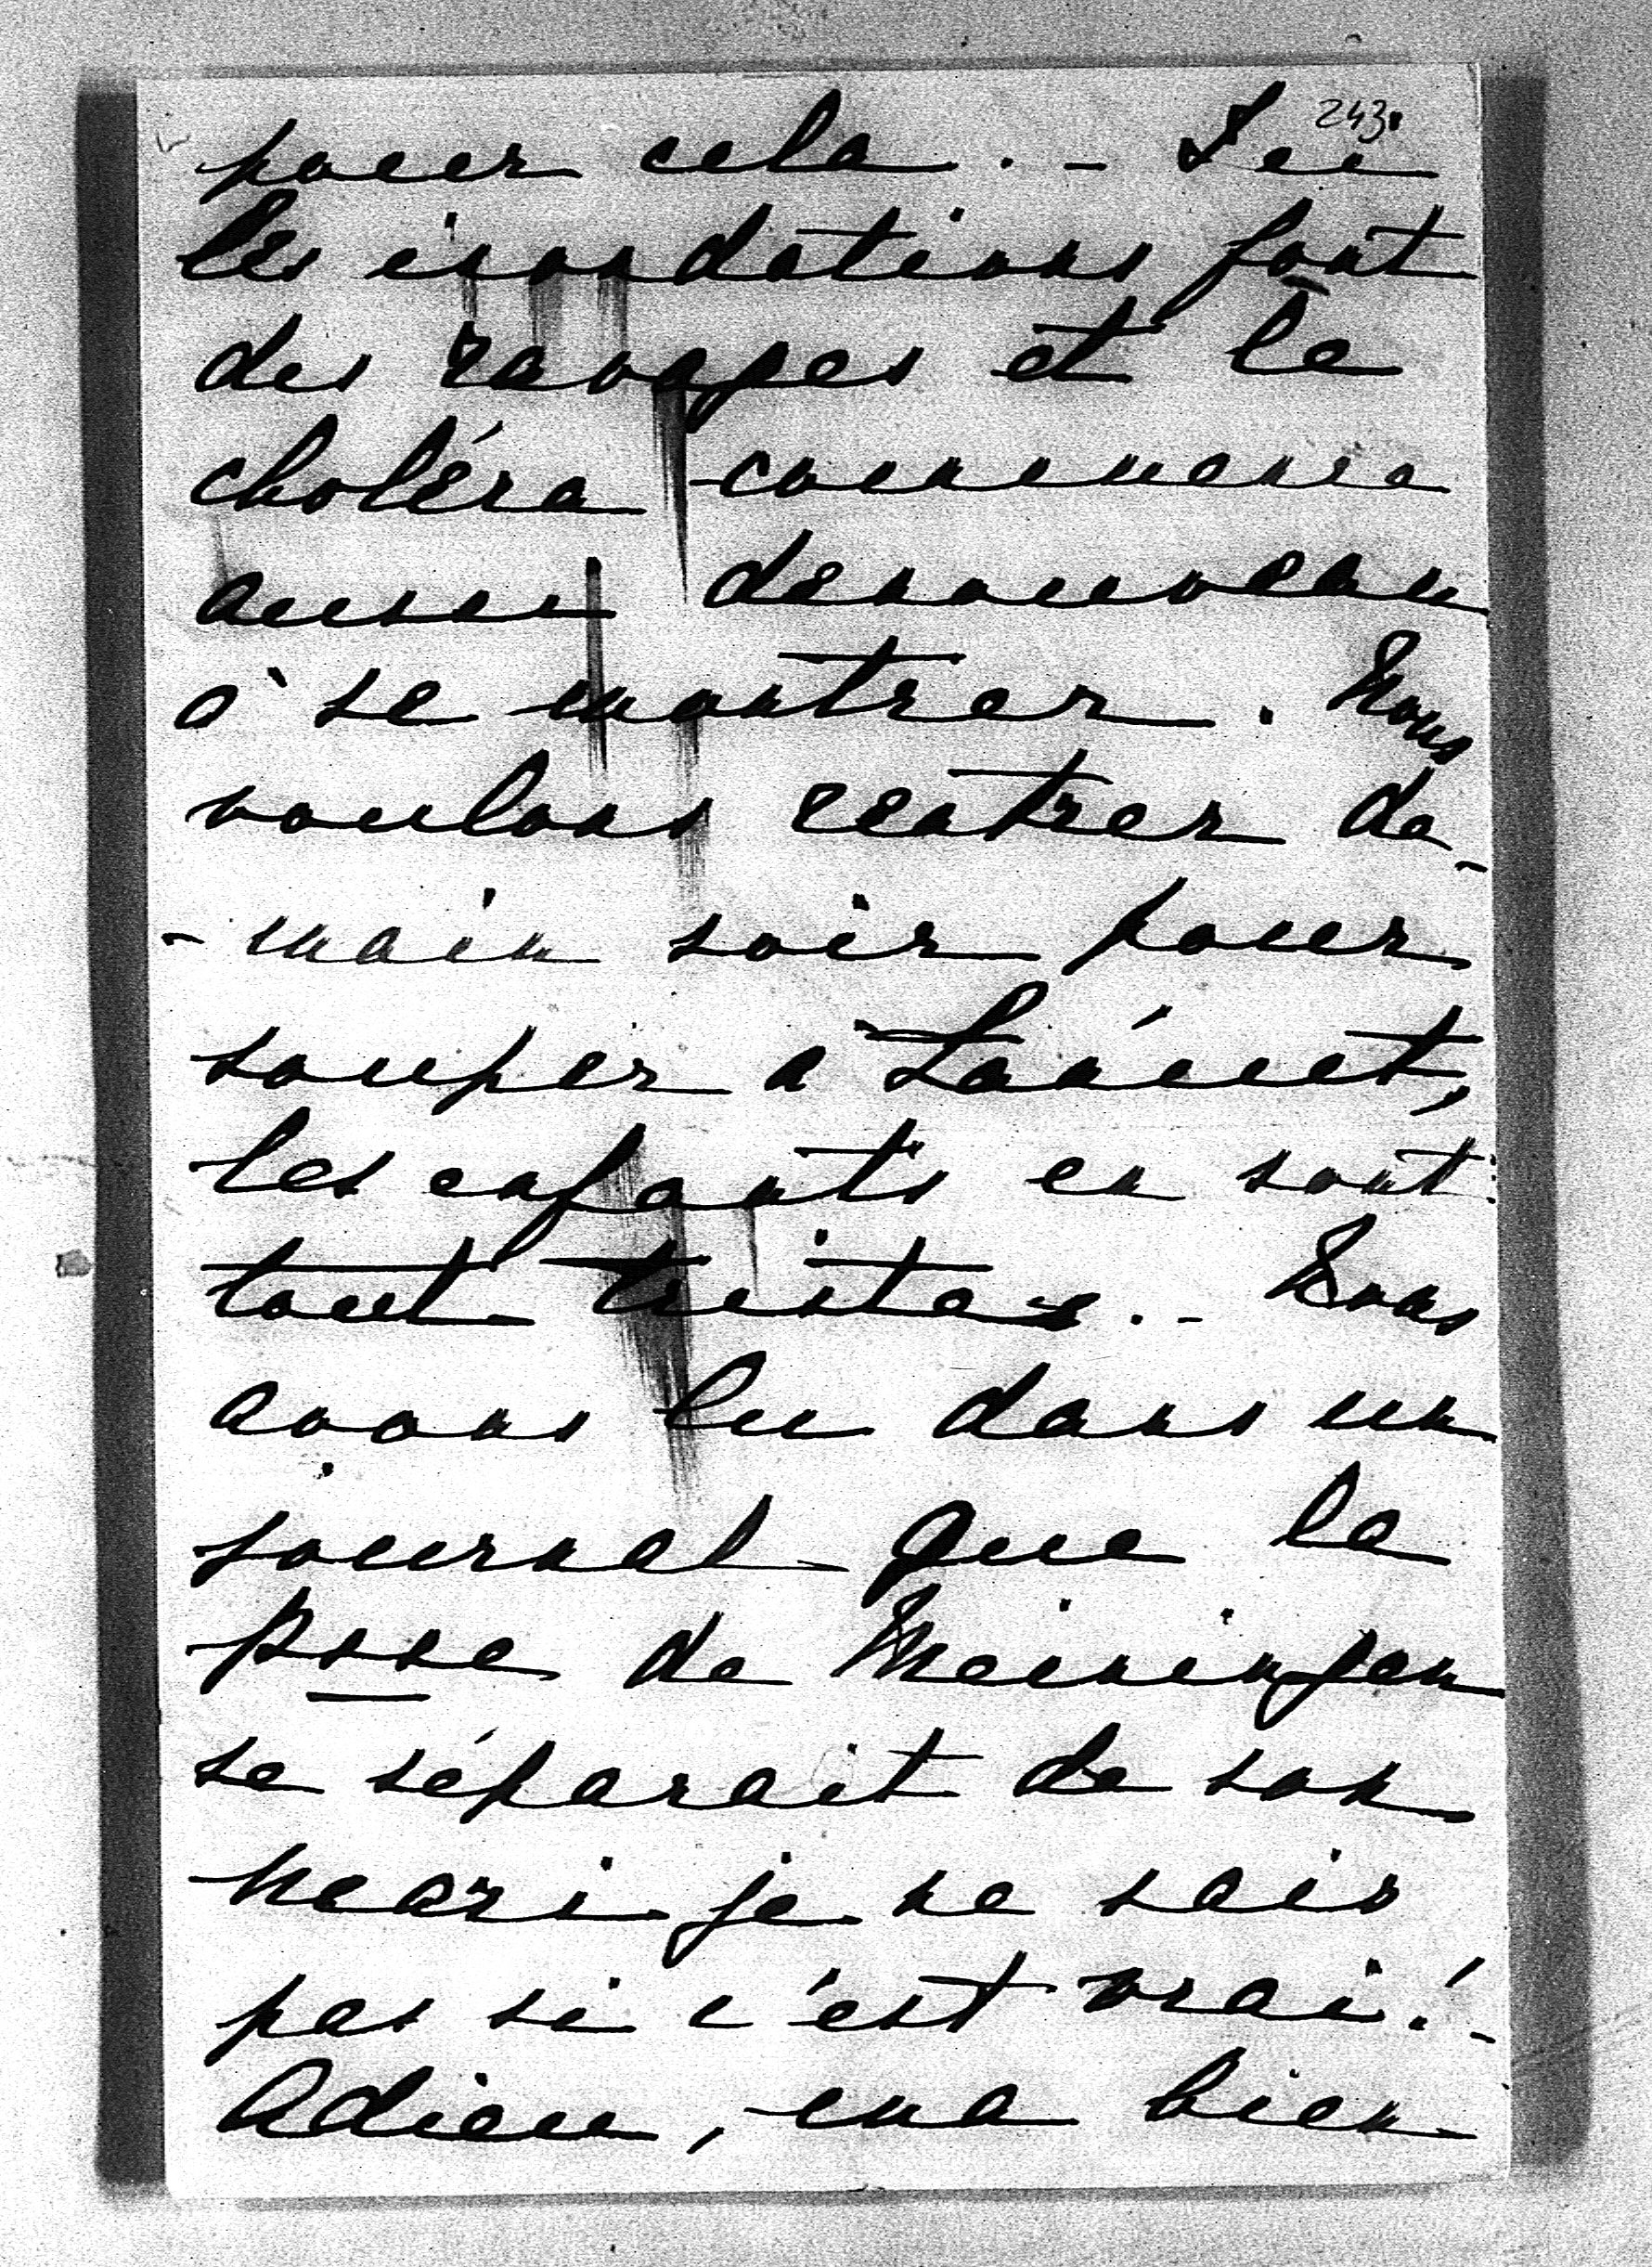 243.
pour cela. - Ici
les inondations font
des ravages et le
choléra commence
aussi denouveau
à se montrer. Nous
voulons rentrer de-
- main soir pour
souper à
les enfants en sont
tout tristes. - Nous
avons lu dans un
journal que la
Psse de Meiningen
se séparait de son
mari je ne sais
pas si c'est vrai! -
Adieu, ma bien